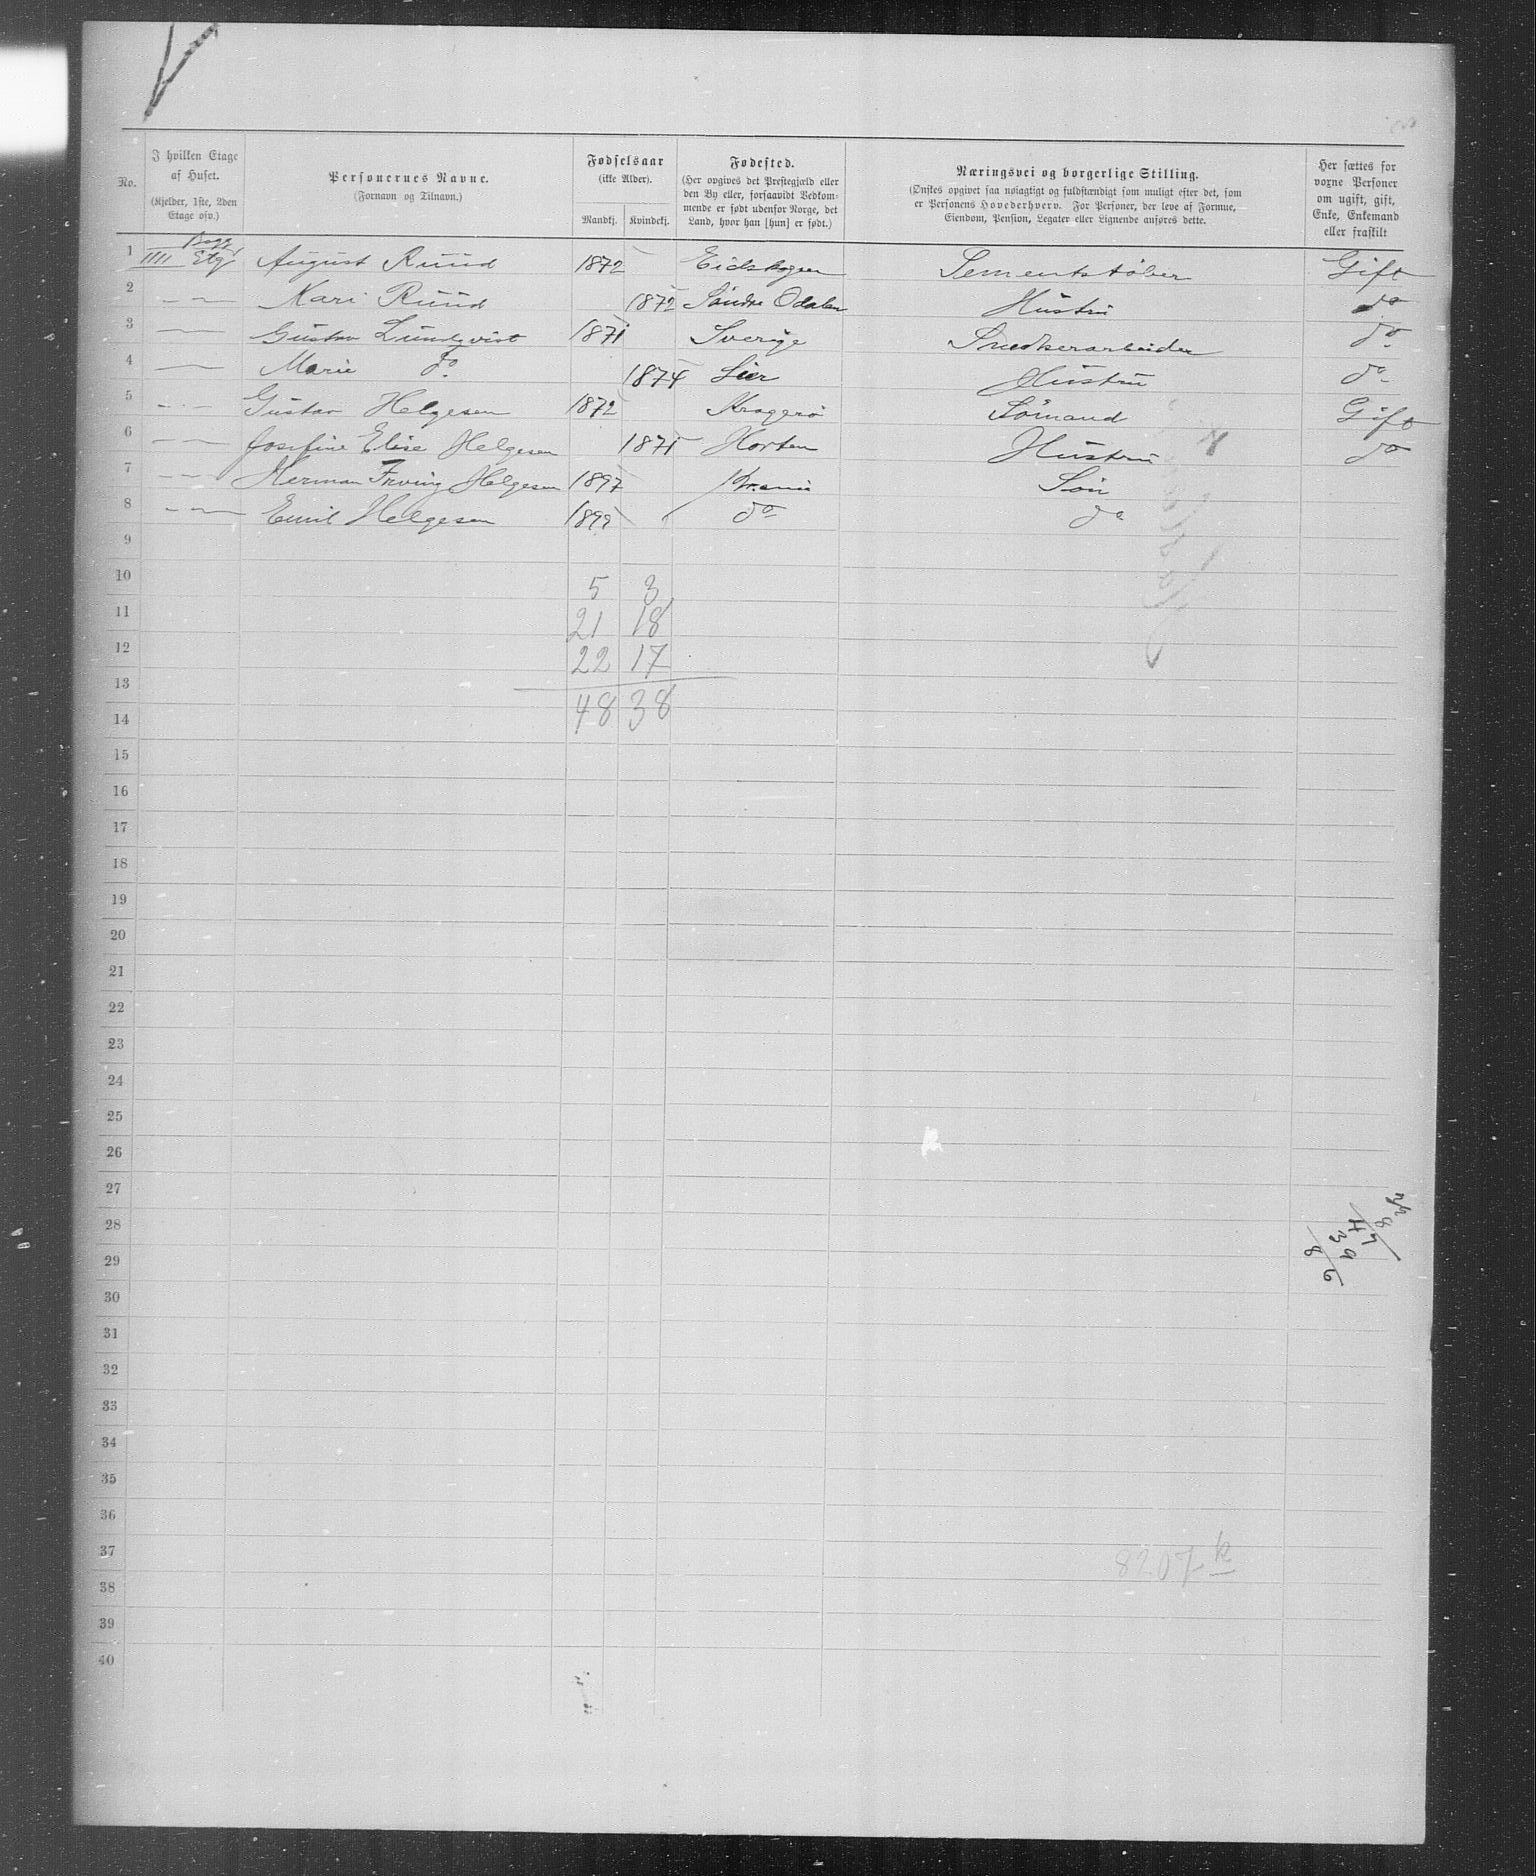 No.
I hvilken Etage af Huset. (Kjelder, 1ste, 2den Etage osv.)
Personernes Navne. (Fornavn og Tilnavn.)
Fødselsaar (ikke Alder). Mandkj. Kvindekj.
Fødested. (Her opgives det Prestegjæld eller den By eller, forsaavidt Vedkommende er født udenfor Norge, det Land, hvor han [hun] er født.)
Næringsvei og borgerlige Stilling. (Ønskes opgivet saa nøiagtigt og fuldstændigt som muligt efter det, som er Personens Hovederhverv. For Personer, der leve af Formue, Eiendom, Pension, Legater eller Lignende anføres dette.)
Her sættes for voxne Personer om ugift, gift, Enke, Enkemand eller fraskilt
1 IIII Bagg Etg August Ruud 1872 Eidskogen Sementstøber Gift
2 — — Kari Ruud 1872 Søndre Odalen Hustru do
3 — — Gustav Lundqvist 1871 Sverige Snedkerarbeider do
4 — — Marie do 1874 Lier Hustru do
5 — — Gustav Helgesen 1872 Kragerø Sømand Gift
6 — — Josefine Elise Helgesen 1871 Horten Hustru do
7 — — Herman Irving Helgesen 1897 Kr.ania Søn
8 — — Emil Helgesen 1899 do do
9
10 5 3
11 21 18
12 22 17
13
14 48 38
15
16
17
18
19
20
21
22
23
24
25
26
27
28
29
30
31
32
33
34
35
36
37 8207 k
38
39
40